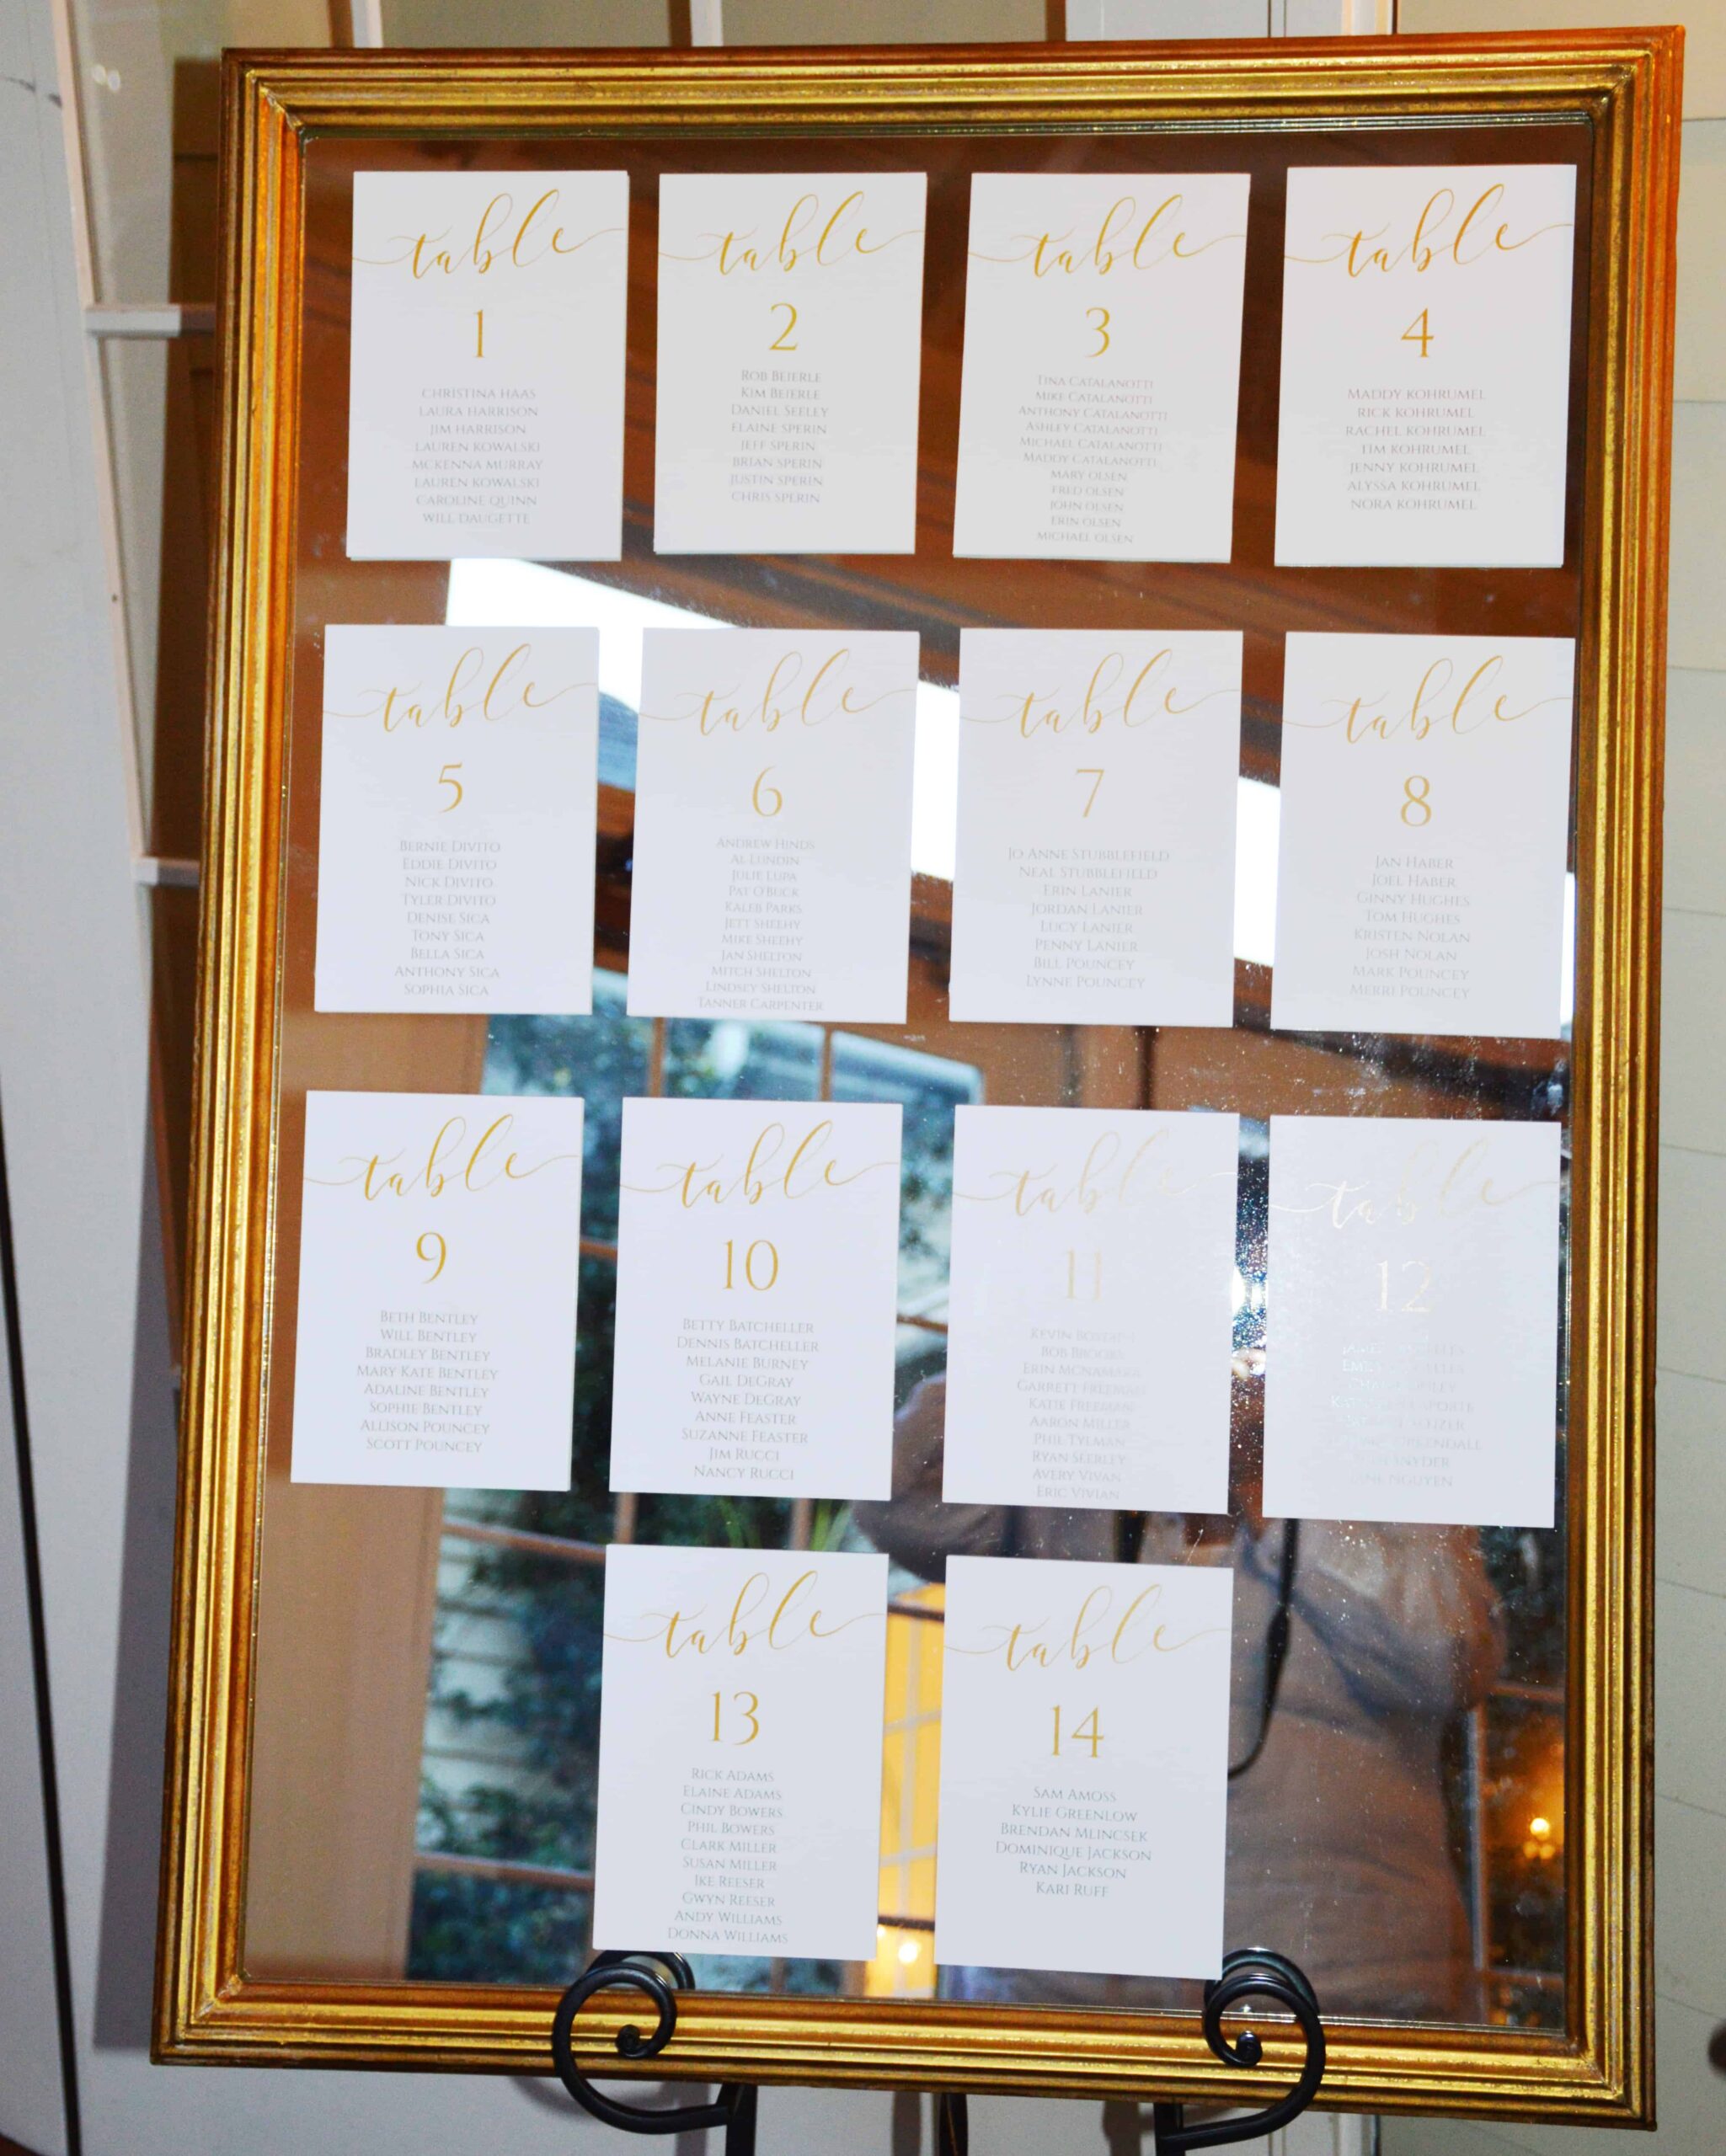 table
1
CHRISTINA HAAS
LAURA HARRISON
JIM HARRISON
LAUREN KOWALSKI
MCKENNA MURRAY
LAUREN KOWALSKI
CAROLINE QUINN
WILL DAUGETTE
table
2
ROB BEIERLE
KIM BEIERLE
DANIEL SEELEY
ELAINE SPERIN
JEFF SPERIN
BRIAN SPERIN
JUSTIN SPERIN
CHRIS SPERIN
table
3
TINA CATALANOTTI
MIKE CATALANOTTI
ANTHONY CATALANOTTI
ASHLEY CATALANOTTI
MICHAEL CATALANOTTI
MADDY CATALANOTTI
MARY OLSEN
FRED OLSEN
JOHN OLSEN
ERIN OLSEN
MICHAEL OLSEN
table
4
MADDY KOHRUMEL
RICK KOHRUMEL
RACHEL KOHRUMEL
TIM KOHRUMEL
JENNY KOHRUMEL
ALYSSA KOHRUMEL
NORA KOHRUMEL
table
5
BERNIE DIVITO
EDDIE DIVITO
NICK DIVITO
TYLER DIVITO
DENISE SICA
TONY SICA
BELLA SICA
ANTHONY SICA
SOPHIA SICA
table
6
ANDREW HINDS
AL LUNDIN
JULIE LUPA
PAT O'BUCK
KALEB PARKS
JETT SHEEHY
MIKE SHEEHY
JAN SHELTON
MITCH SHELTON
LINDSEY SHELTON
TANNER CARPENTER
table
7
JO ANNE STUBBLEFIELD
NEAL STUBBLEFIELD
ERIN LANIER
JORDAN LANIER
LUCY LANIER
PENNY LANIER
BILL POUNCEY
LYNNE POUNCEY
table
8
JAN HABER
JOEL HABER
GINNY HUGHES
TOM HUGHES
KRISTEN NOLAN
JOSH NOLAN
MARK POUNCEY
MERRI POUNCEY
table
9
BETH BENTLEY
WILL BENTLEY
BRADLEY BENTLEY
MARY KATE BENTLEY
ADALINE BENTLEY
SOPHIE BENTLEY
ALLISON POUNCEY
SCOTT POUNCEY
table
10
BETTY BATCHELLER
DENNIS BATCHELLER
MELANIE BURNEY
GAIL DEGRAY
WAYNE DEGRAY
ANNE FEASTER
SUZANNE FEASTER
JIM RUCCI
NANCY RUCCI
table
11
KEVIN
BOB BROOKS
ERIN MCNAMARA
GARRETT FREEMAN
KATIE FREEMAN
AARON MILLER
PHIL TYLMAN
RYAN SEERLEY
AVERY VIVAN
ERIC VIVIAN
table
12
SNYDER
NGUYEN
table
13
RICK ADAMS
ELAINE ADAMS
CINDY BOWERS
PHIL BOWERS
CLARK MILLER
SUSAN MILLER
IKE REESER
GWYN REESER
ANDY WILLIAMS
DONNA WILLIAMS
table
14
SAM AMOSS
KYLIE GREENLOW
BRENDAN MLINCSEK
DOMINIQUE JACKSON
RYAN JACKSON
KARI RUFF